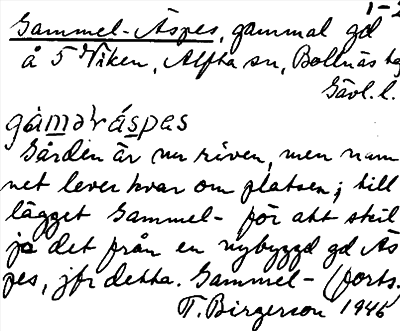 1-2
Gammel-Äspes, gammal gd
å 5 Viken, Alfta sn, Bollnäs
Gävl. l.
gàməl-ráspes
Gården är nu riven, men nam-
net lever kvar om platsen; till
lägget Gammel- för att skil
ja det från en nybyggd gd Äs
pes, jfr detta. Gammel- (forts.
T. Birgerson 1946